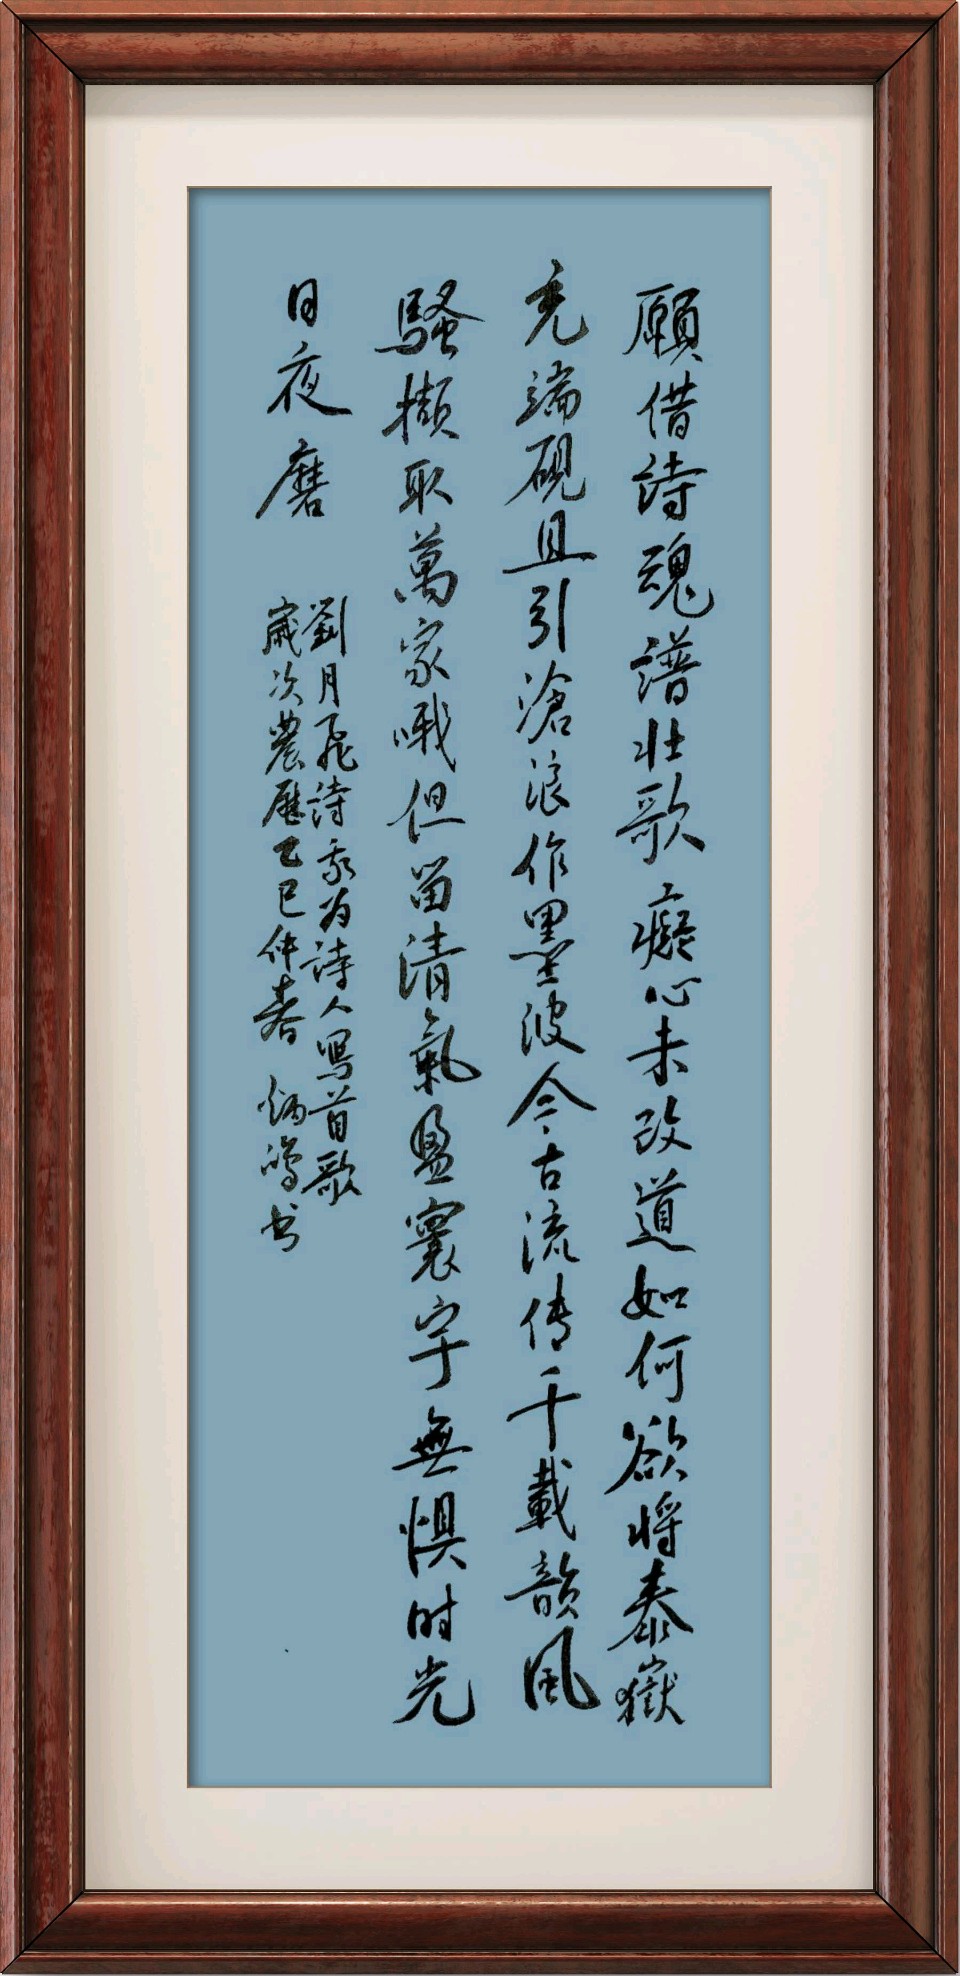 願借詩魂譜壯歌癡心未改道如何欲將泰嶽
充端硯且引滄浪作墨波今古流传千載韻風
騷擷取萬家哦但留清氣盈寰宇無惧时光
日夜磨
劉月飛詩家为詩人寫首歌
歲次農歷乙巳仲春 炳鴻书